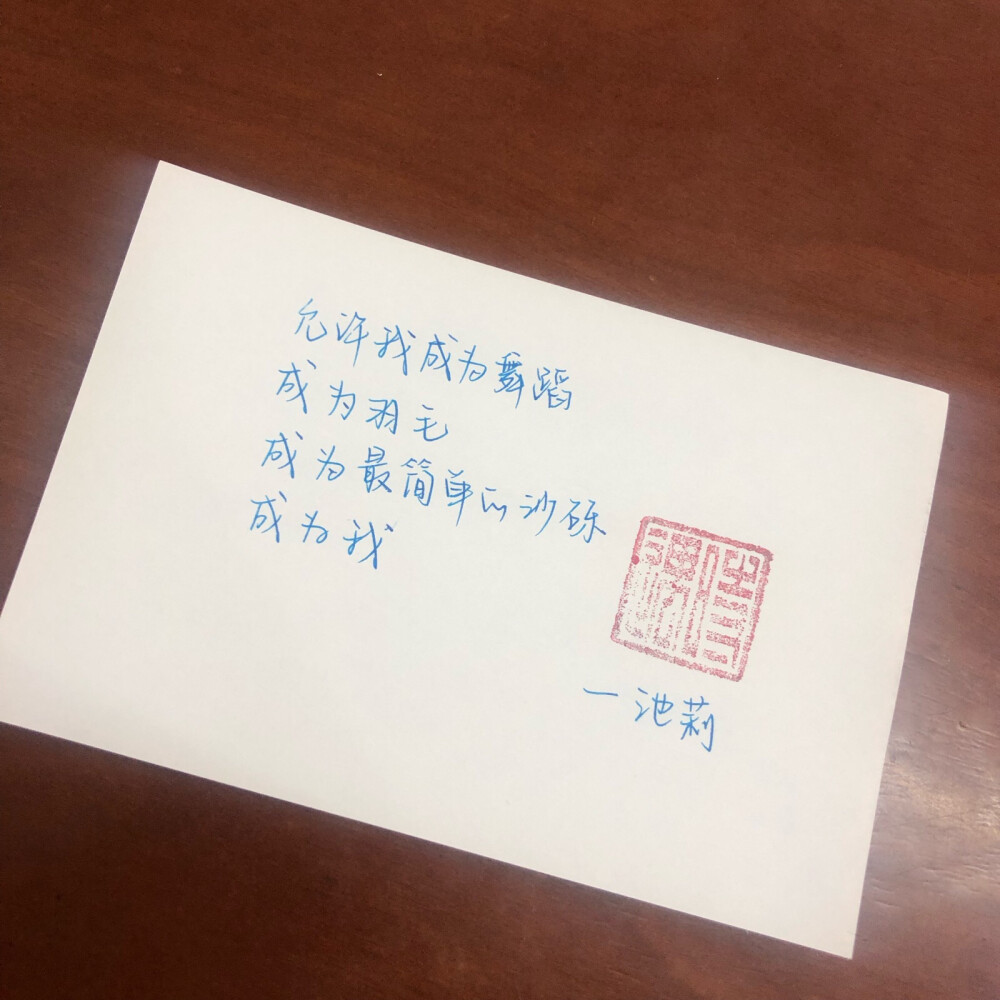 允许我成为舞蹈
成为羽毛
成为最简单的沙砾
成为我
一池莉